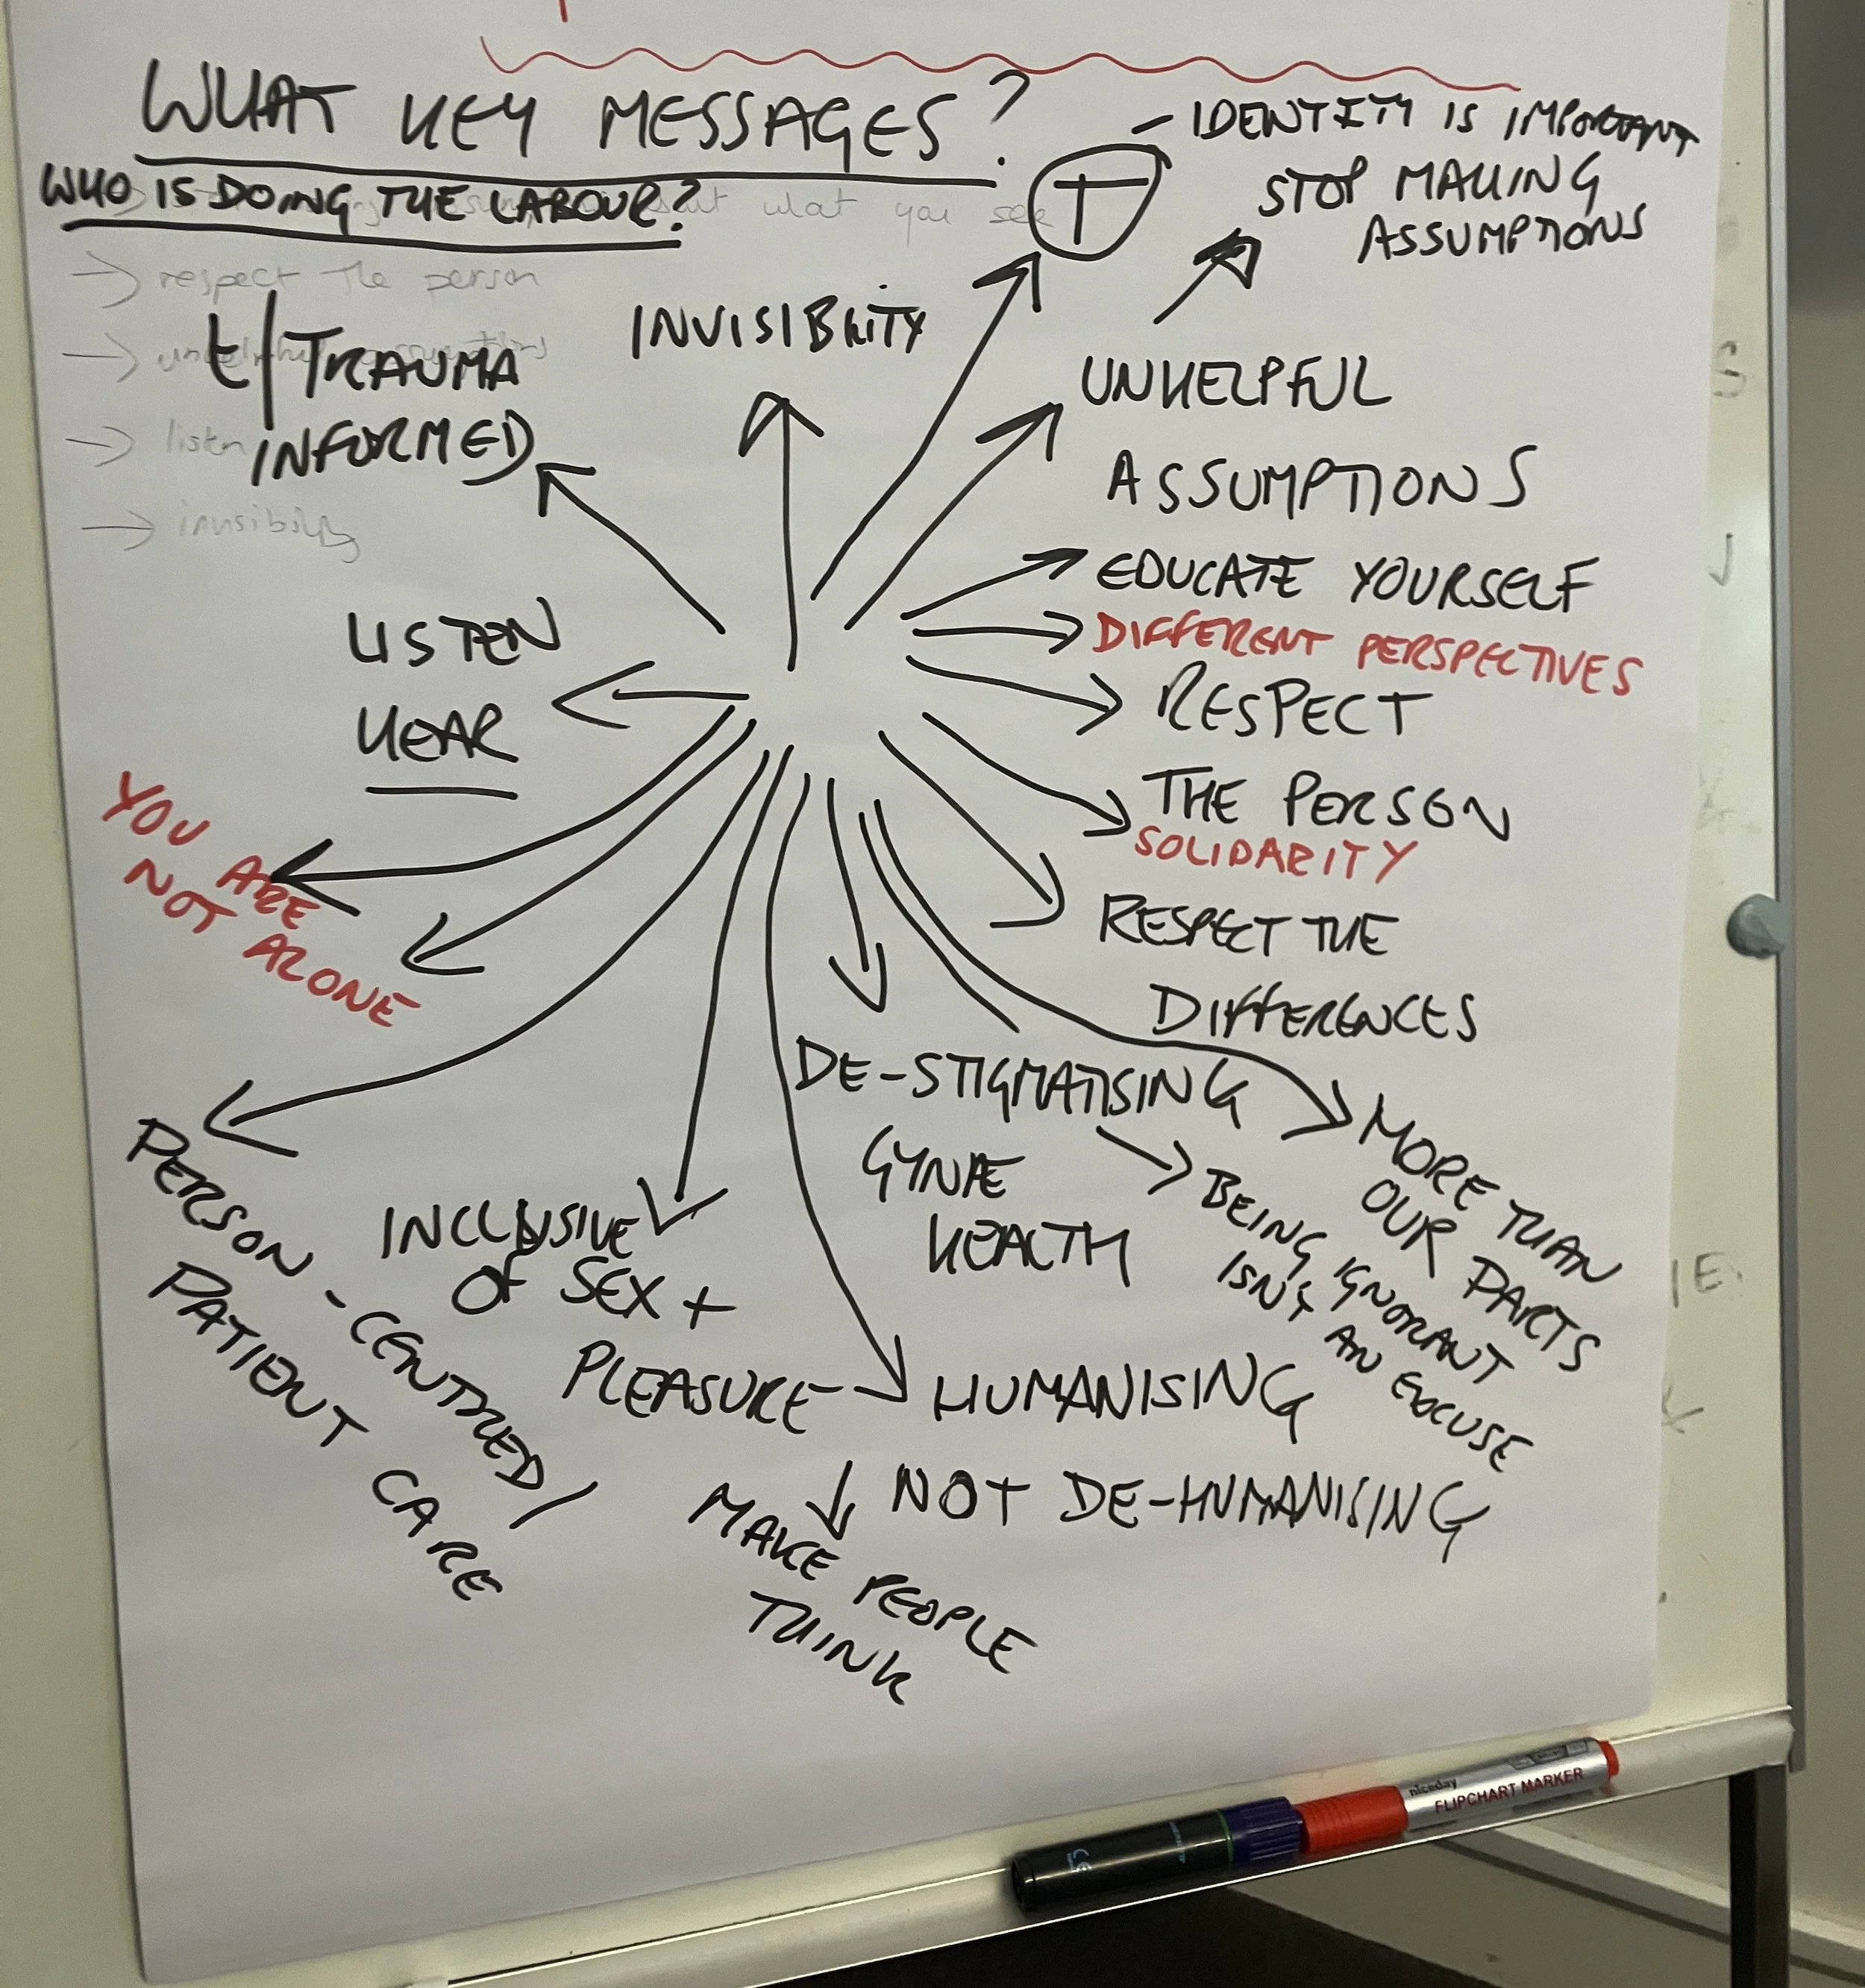 WHAT KEY MESSAGES?
WHO IS DOING THE LABOUR?
what you see
→ respect the person
→
→ listen
→ invisibility
T
- IDENTITY IS IMPORTANT
STOP MAKING
ASSUMPTIONS
t/TRAUMA
INFORMED
INVISIBILITY
UNHELPFUL
ASSUMPTIONS
EDUCATE YOURSELF
DIFFERENT PERSPECTIVES
RESPECT
THE PERSON
SOLIDARITY
RESPECT THE
DIFFERENCES
LISTEN
HEAR
YOU ARE
NOT ALONE
MORE THAN
OUR PARTS
DE-STIGMATISING
GYNAE
HEALTH
BEING IGNORANT
ISN'T AN EXCUSE
PERSON-CENTRED/
PATIENT CARE
INCLUSIVE
OF SEX +
PLEASURE
HUMANISING
NOT DE-HUMANISING
MAKE PEOPLE
THINK
niceday
FLIPCHART MARKER